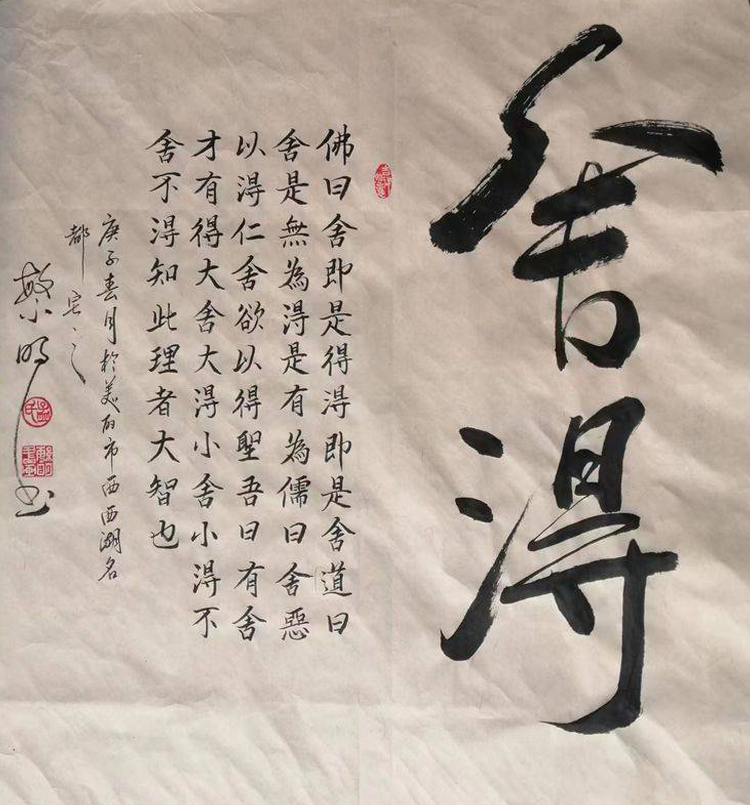 舍得
佛曰舍即是得得即是舍道曰
舍是無為得是有為儒曰舍惡
以得仁舍欲以得聖吾曰有舍
才有得大舍大得小舍小得不
舍不得知此理者大智也
庚子春月於美的市西西湖名
都
明书